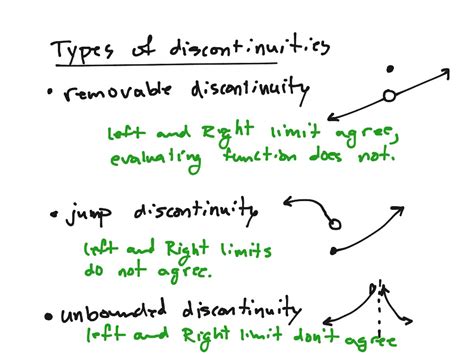 Types of discontinuities
• removable discontinuity
left and Right limit agree,
evaluating function does not.
• jump discontinuity
left and Right limits
do not agree.
• unbounded discontinuity
left and Right limit don't agree